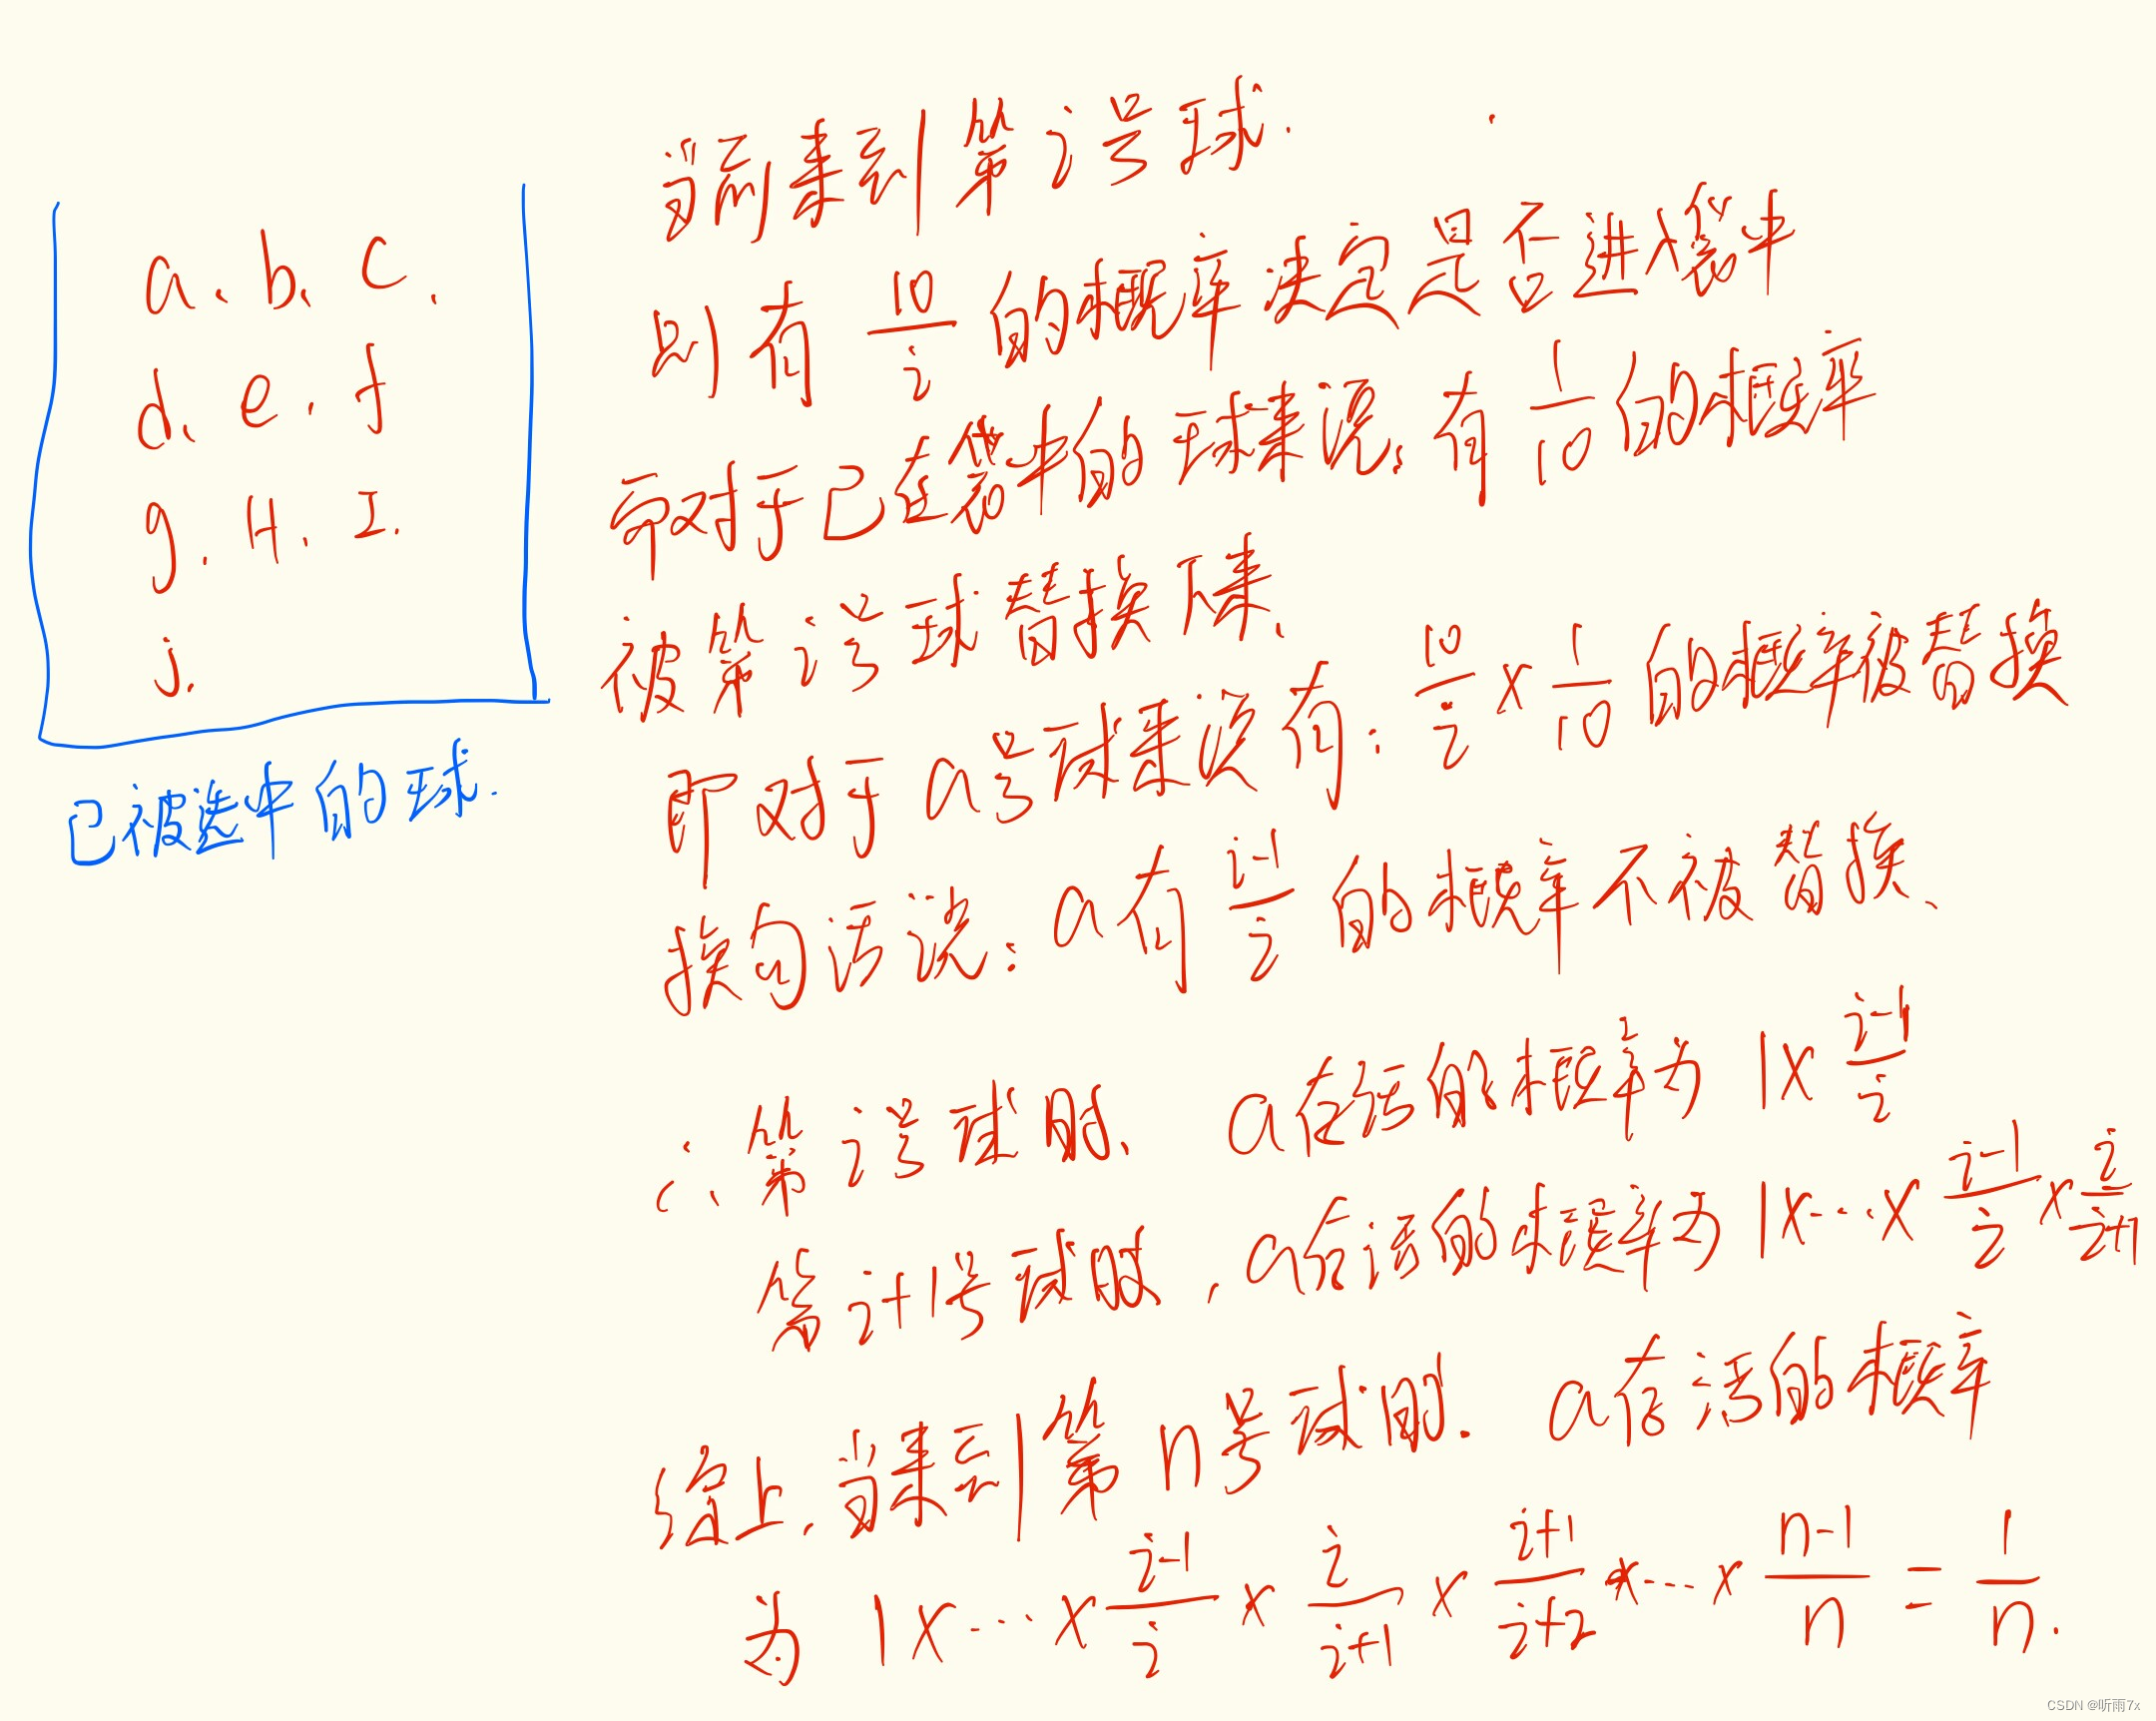 a、b、c.
d、e.f
g.H.I.
j.
已被选中的球.
当前来到第i号球.
则有 10/i 的概率决定是否进入袋中
而对于已在袋中的球来说、有 1/10 的概率
被第i号球替换下来、
即对于a号球来说有: 10/i × 1/10 的概率被替换
换句话说: a有 i-1/i 的概率不被替换、
∴、第i号球时、 a存活的概率为 1× i-1/i
第i+1号球时, a存活的概率为 1×…× i-1/i × i/i+1
综上,当来到第n号球时. a存活的概率
为 1×…× i-1/i × i/i+1 × i+1/i+2 ×…× n-1/n = 1/n.
CSDN @听雨7x